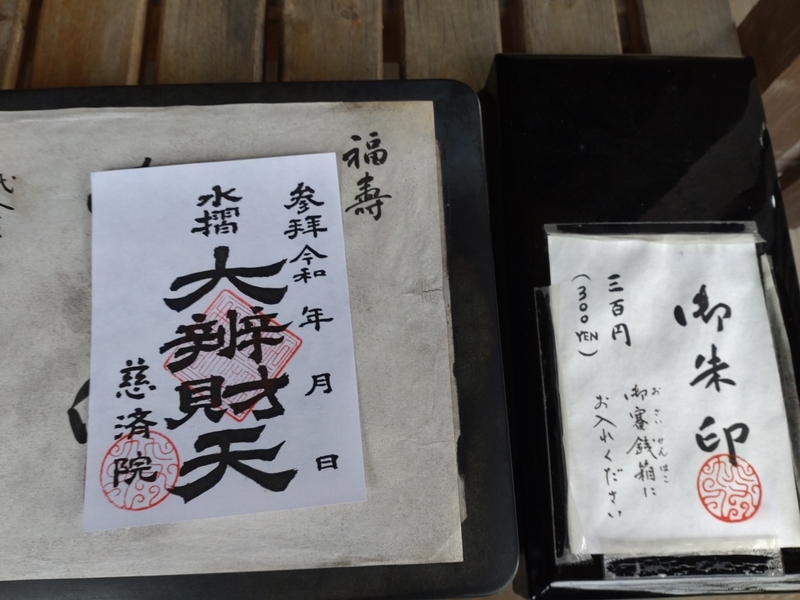 福壽
参拝令和 年 月 日
水摺
大辨財天
慈済院
御朱印
三百円
(300YEN)
おさいせんばこ
御賽銭箱に
お入れください